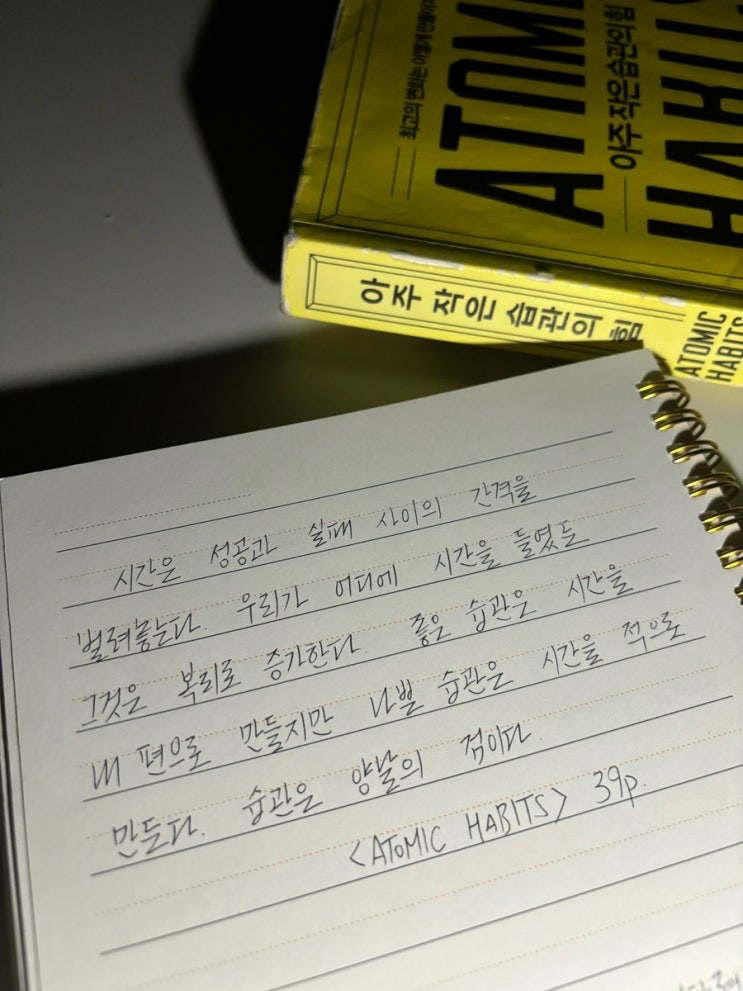 최고의 변화는 어떻게 만들어지
ATOMI
아주 작은 습관의 힘
HABITS
아주 작은 습관의 힘
ATOMIC
HABITS
시간은 성공과 실패 사이의 간격을
벌려놓는다. 우리가 어디에 시간을 들였든
그것은 복리로 증가한다. 좋은 습관은 시간을
내 편으로 만들지만 나쁜 습관은 시간을 적으로
만든다. 습관은 양날의 검이다
<ATOMIC HABITS> 39p.